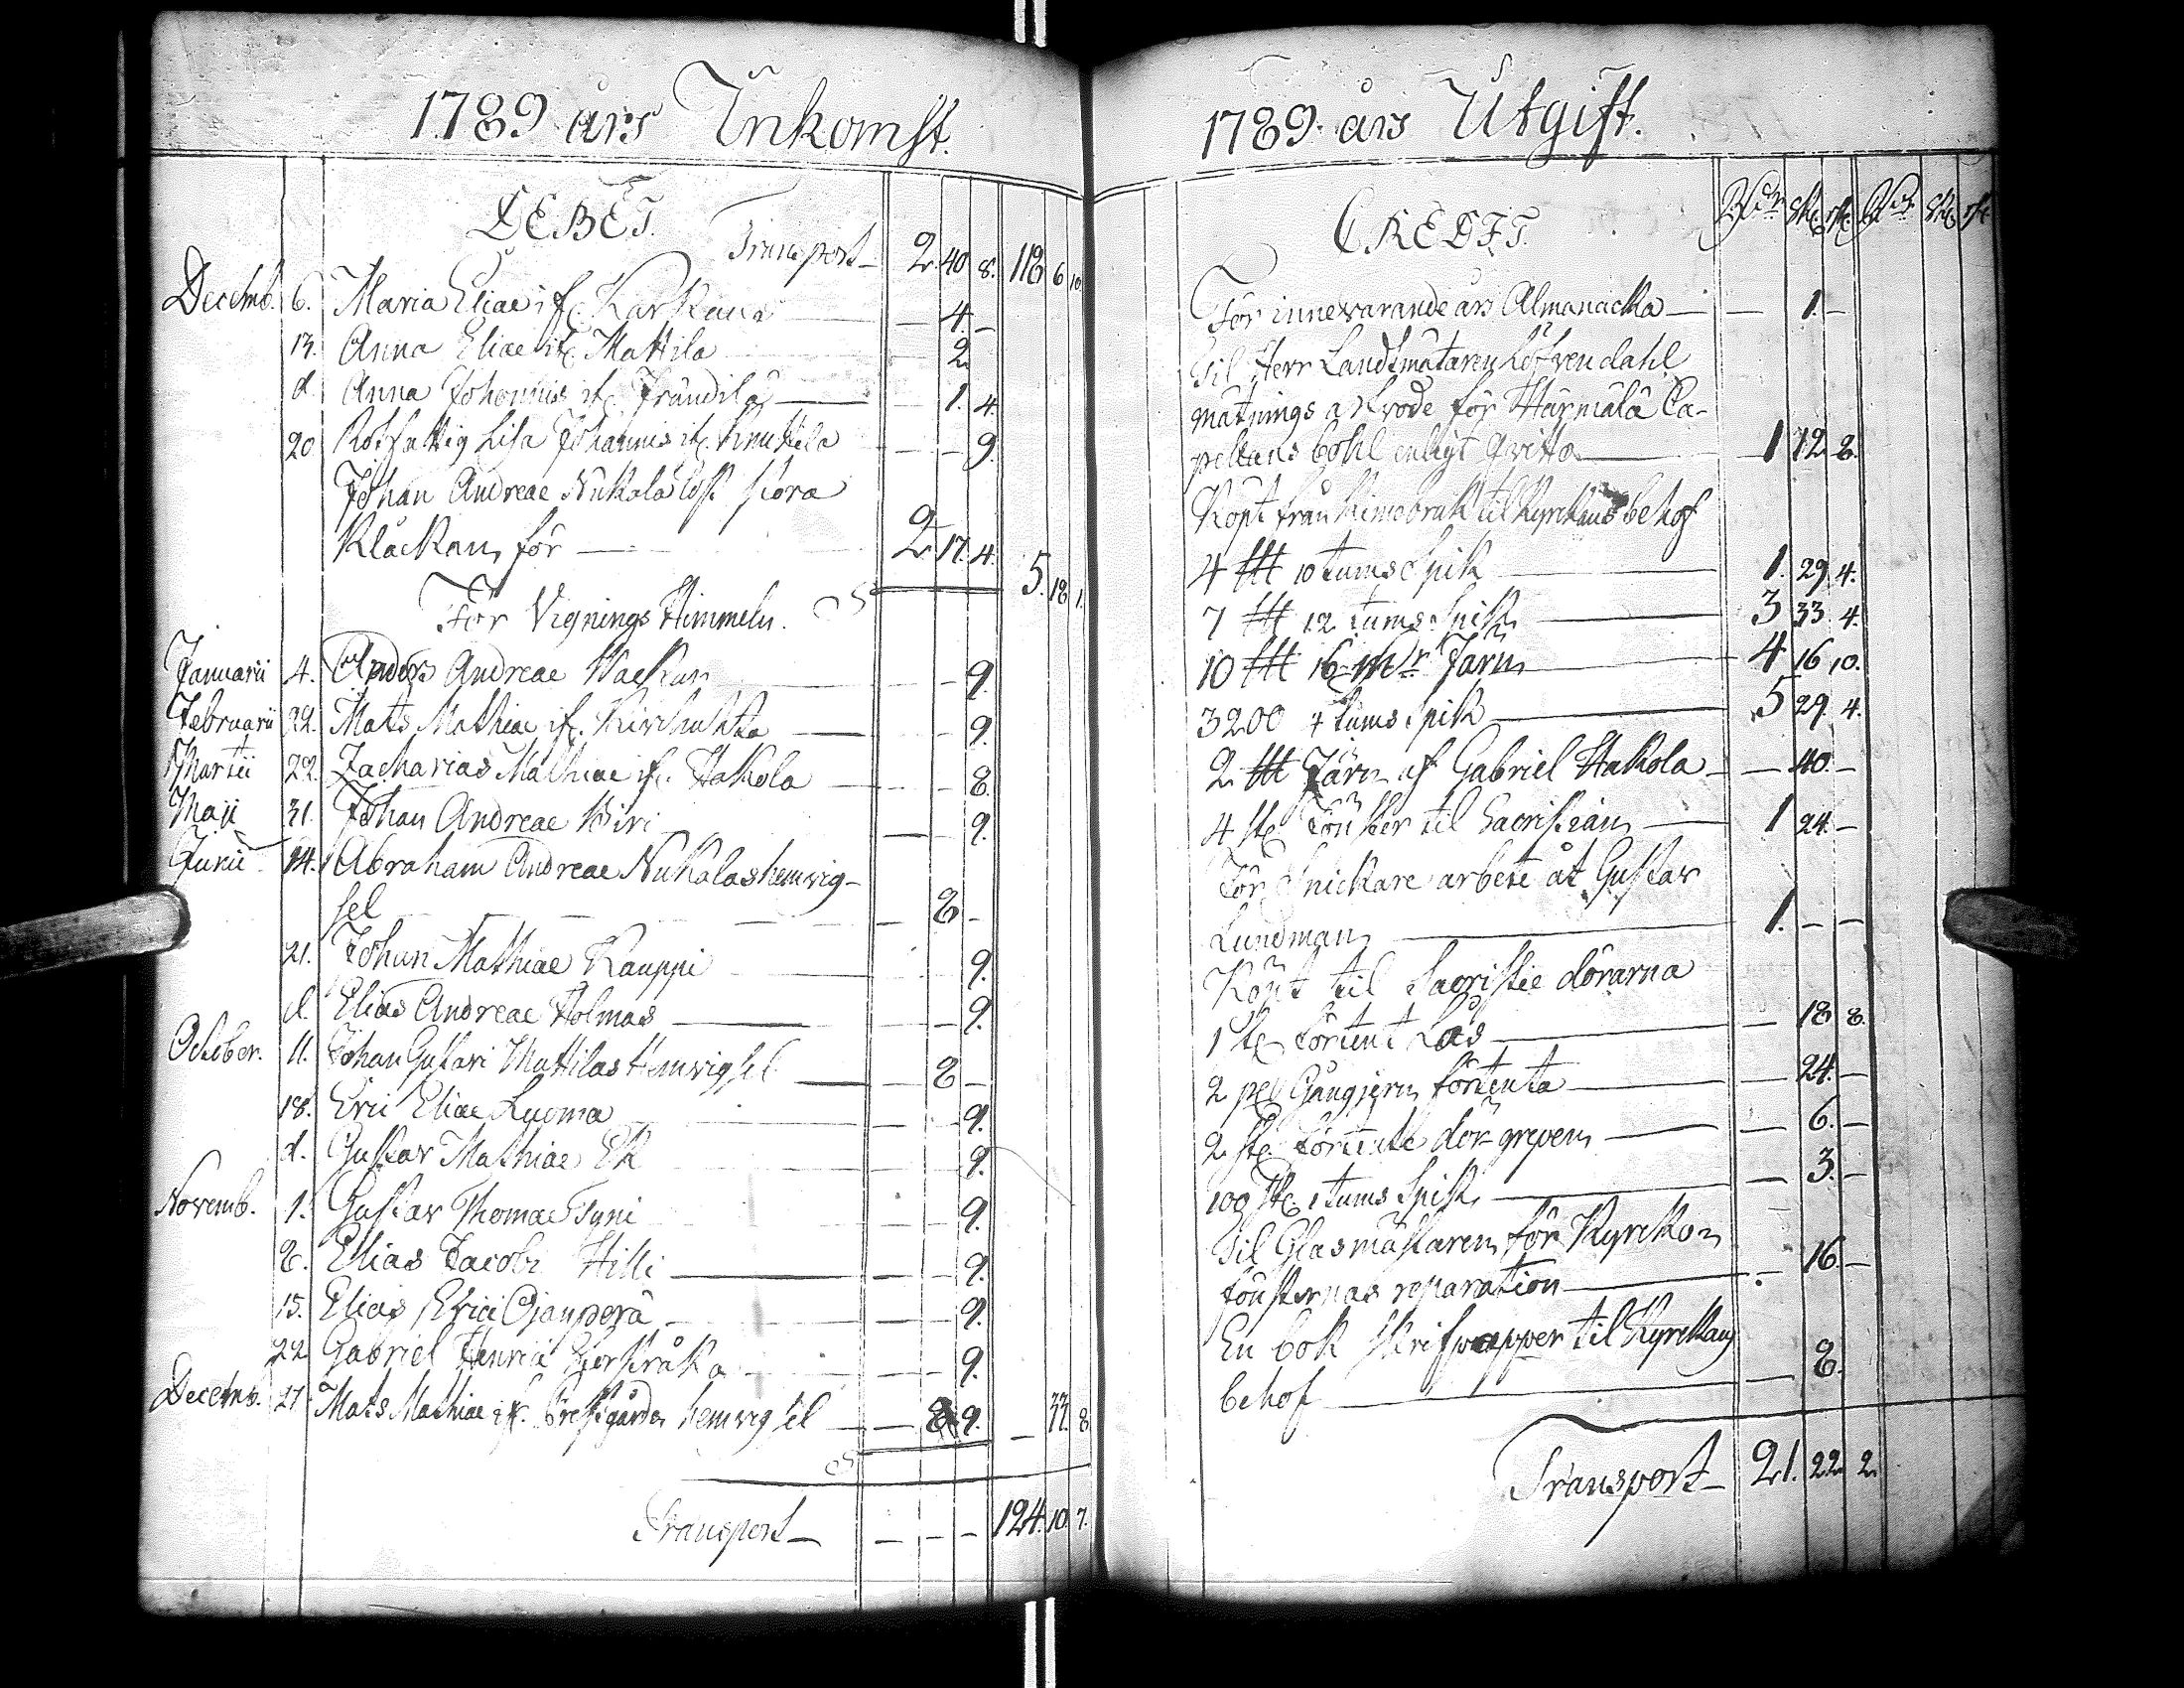 1789 års Inkomst.
DEBET.
Transport 2. 40 8. 118 6 10.
Decemb. 6. Maria Eliae if. Karkaus — 4. —
13. Anna Eliae if. Mattila 2
d. Anna Johannis if. Frändilä — 1. 4.
20 Rotfattig Lisa Johannis if. Knuttila — — 9.
Johan Andreae Nukala löst stora
Klåckan för — 2. 17. 4. 5. 18 1.
För Vignings Himmeln.
Januarii 4. Anders Andreae — 9.
Februarii 22. Mats Mathiae if. — 9.
Martii 22. Zacharias Mathiae if. Hakola — 8.
Maji 31. Johan Andreae — 9.
Junii 14. Abraham Andreae Nukalas hemvig-
sel — 8 —
21. Johan Mathiae Kauppi — 9.
d. Elias Andreae Holmas — 9.
October. 11. Johan Gustavi Mattilas Hemvigsel — 8 —
18. Eric Eliae Luoma — 9.
d. Gustav Mathiae Ek — 9.
Novemb. 1. Gustav Thomae Tyni — 9.
8. Elias Jacobi Hilli — 9.
15. Elias Erici Ojanperä — 9.
22 Gabriel Henrici — 9.
Decemb. 27. Mats Mathiae if. Prestgårdn hemvigsel — 8 9. — 33. 8
Transport — — — — 124. 10. 7.
1789 års Utgift.
CREDIT.
Rdr sk. rst. Rdr sk. rst.
För innevarande års Almanacka — — 1. —
Til Herr Landtmätaren Löfvendahl
mätnings arfvode för Härmälä Ca-
pellans bohl enligt qvitto — 1 12 8.
Köpt från Kimobruk til Kyrckans behof
4 ℔ 10 tums Spik — 1. 29 4.
7 ℔ 12 tums Spik — 3 33 4.
10 ℔ 16 Mr Järn — 4 16 10.
3200 4 tums Spik — 5 29. 4.
2 ℔ Järn af Gabriel Hakola — — 40. —
4 st. Fönster til Sacristian — 1 24. —
För Snickare arbete åt Gustav
Lundman — 1. — —
Köpt til Sacristie dörarna
1 st. förtent Lås — — 18 8.
2 par Gångjern förtenta — — 24. —
2 st. förtente dör grepen — — 6. —
100 st. 1 tums Spik — — 3. —
Til Glasmästaren för Kyrcko-
fönsternas reparation — — 16. —
En bok skrifpapper til Kyrckans
behof — — 8.
Transport — 21. 22 2.